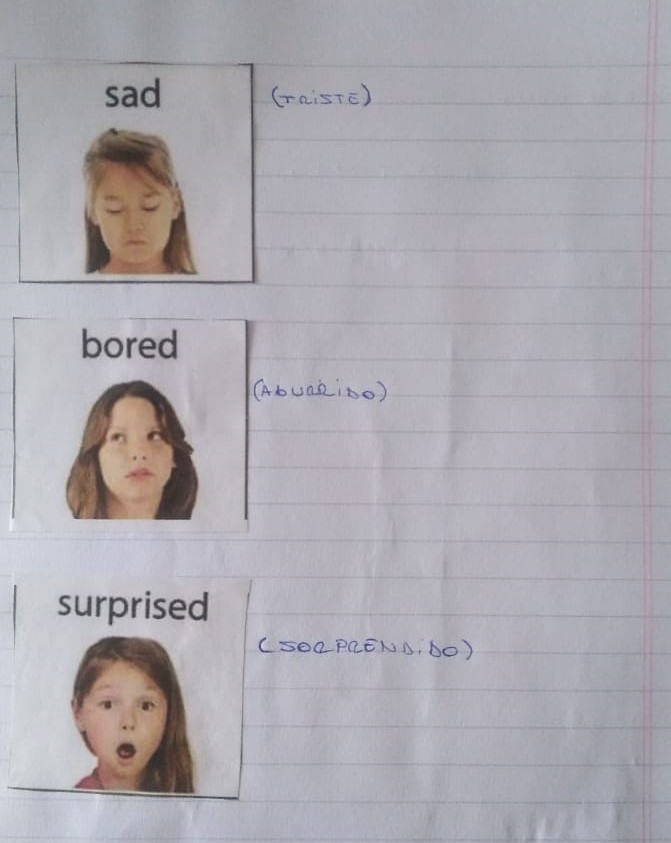 sad
(TRISTE)
bored
(AbURRiDO)
surprised
(SORPRENDiDO)